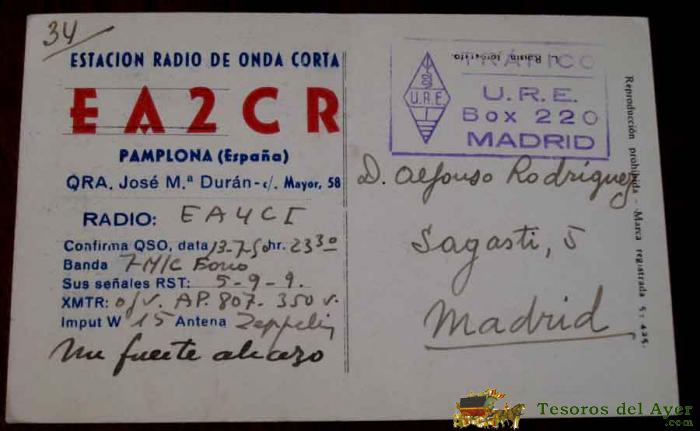 34
ESTACION RADIO DE ONDA CORTA
EA2CR
PAMPLONA (España)
QRA. José M.ª Durán - c/. Mayor, 58
RADIO: EA4CI
Confirma QSO, data 13-7-50 hr. 2330
Banda 7 M/C Fonio
Sus señales RST: 5-9-9.
XMTR: o/v. AP. 807. 350 v.
Imput W 15 Antena Zeppelin
Un fuerte abrazo
TRÁFICO
U.R.E.
U.R.E.
Box 220
MADRID
D. Alfonso Rodríguez
Sagasti, 5
Madrid
Reproducción prohibida - Marca registrada
Tesoros del Ayer
.com